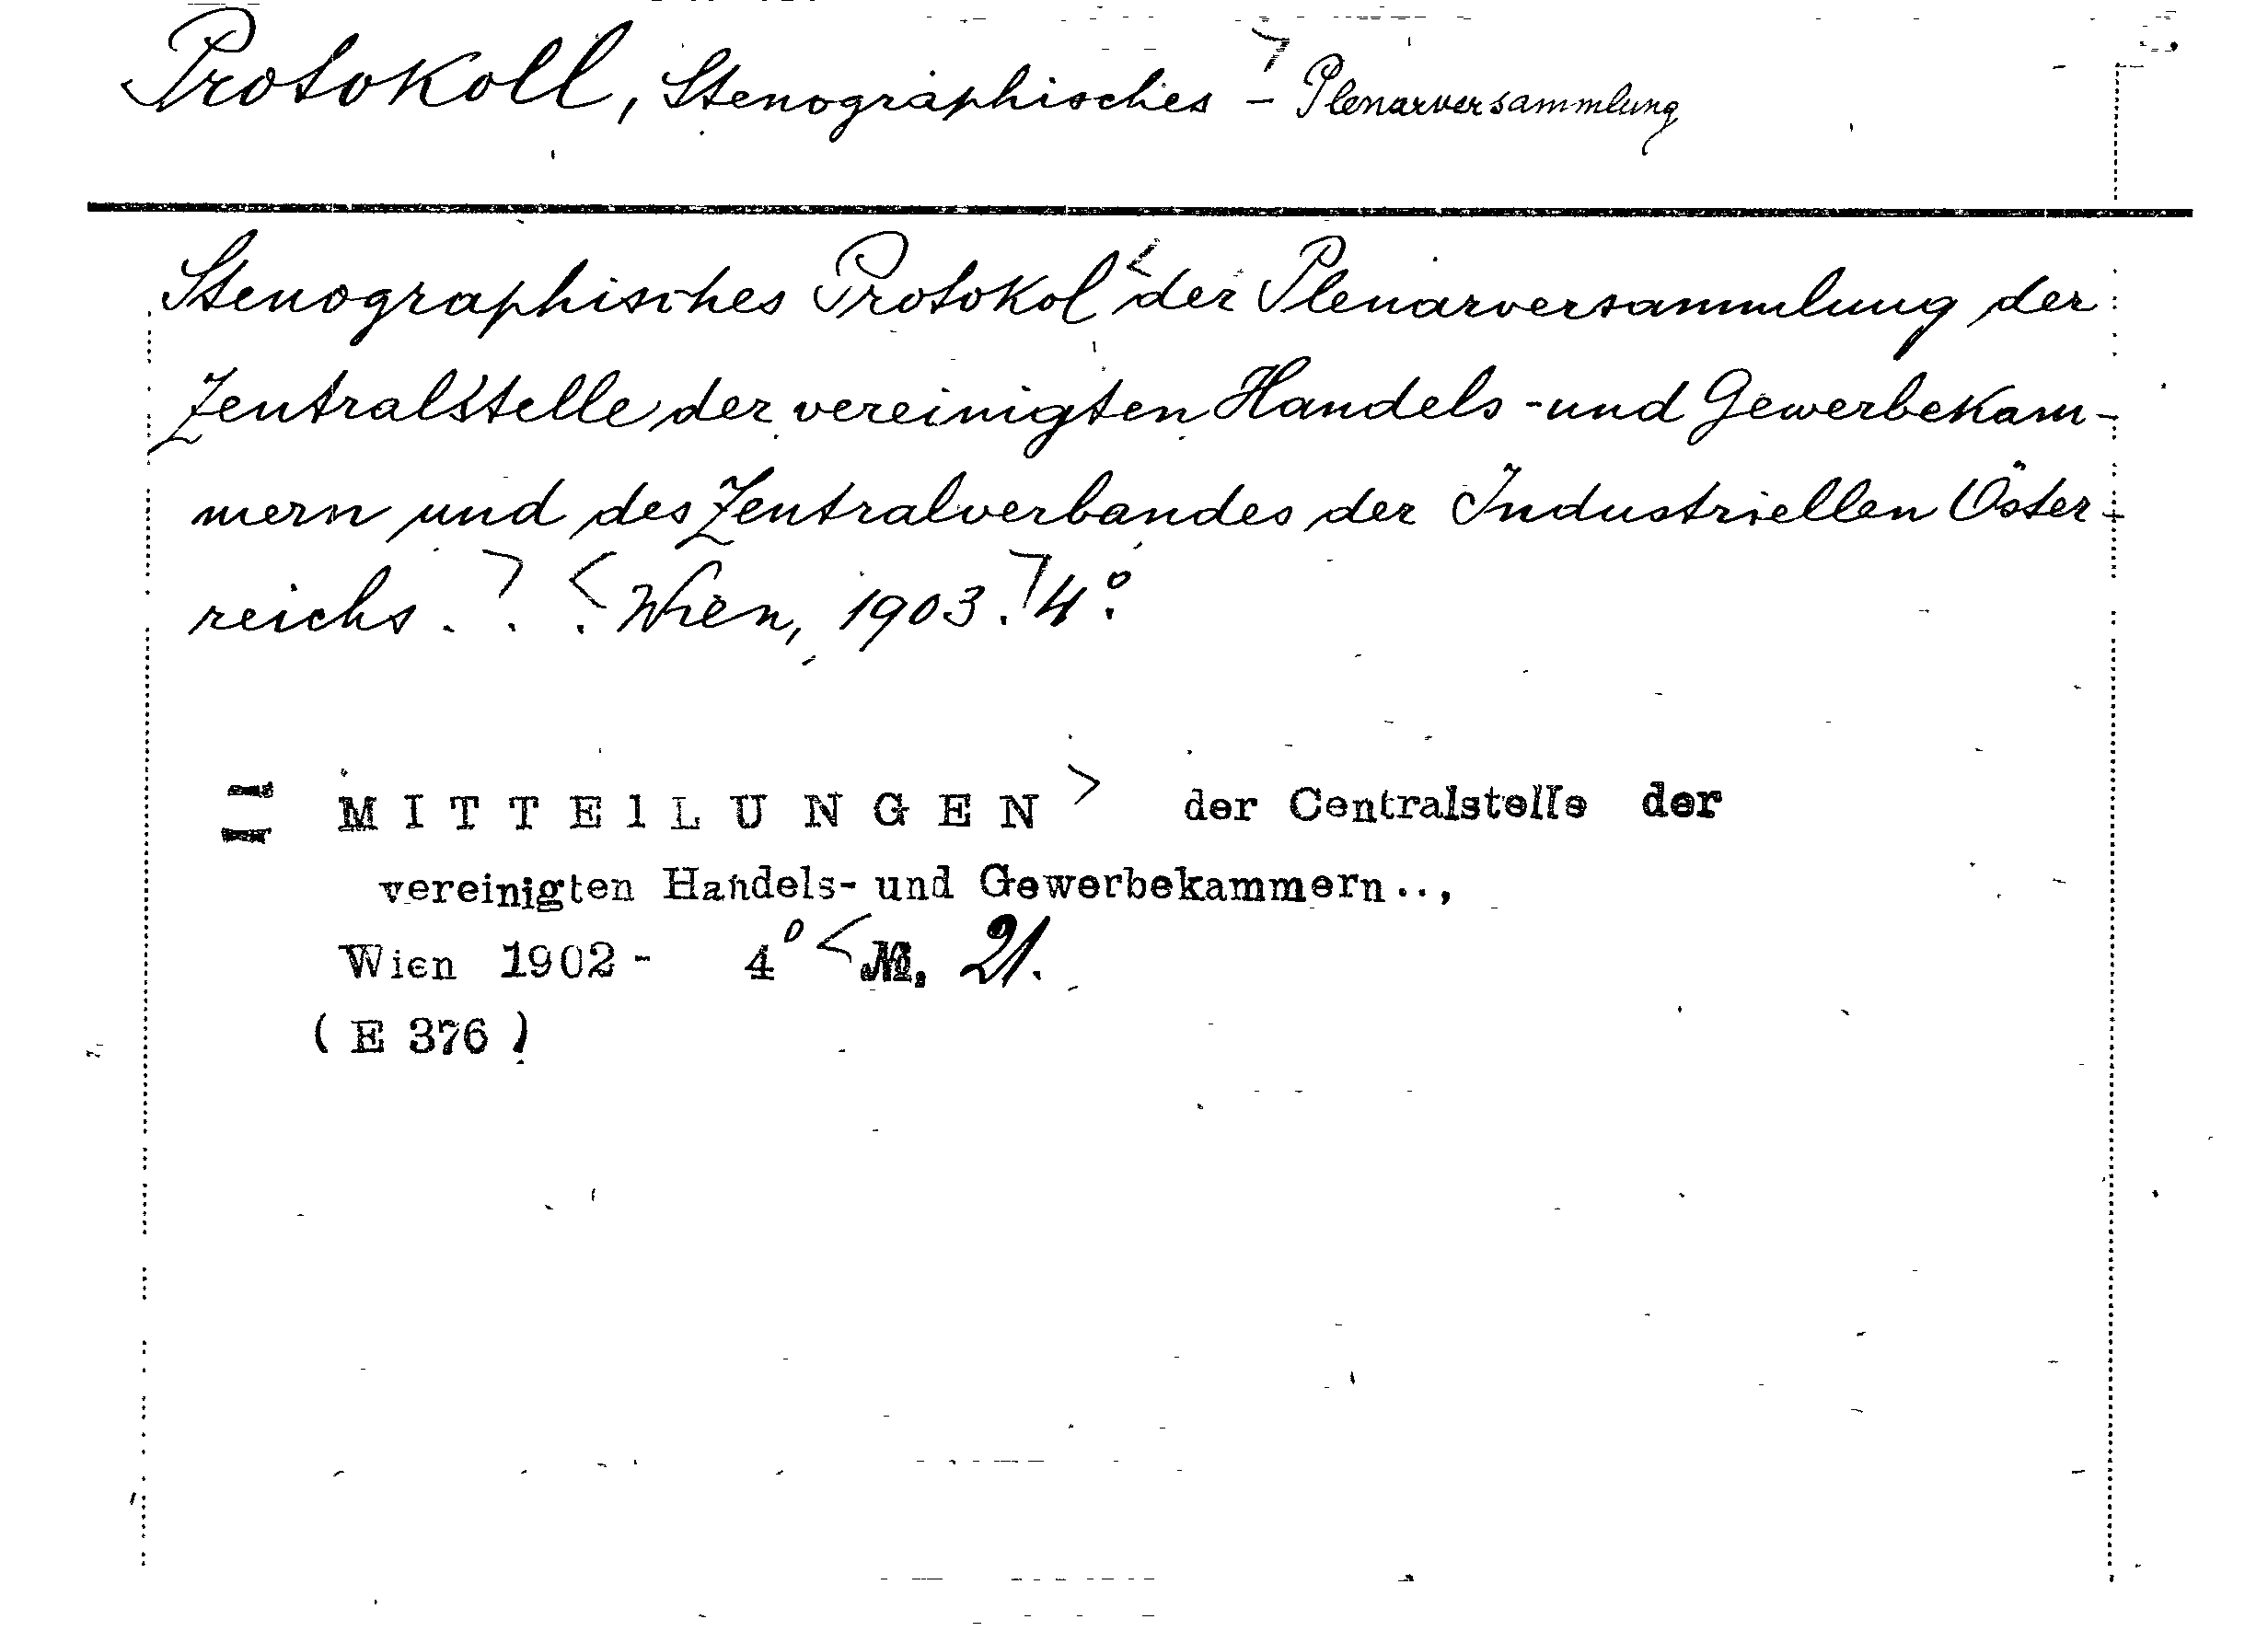 Protokoll, Stenographisches - Plenarversammlung
Stenographisches Protokol der Plenarversammlung der
Zentralstelle der vereinigten Handels - und Gewerbekam-
mern und des Zentralverbandes der Industriellen Öster-
reichs . . . Wien, 1903. 4°.
= MITTEILUNGEN der Centralstelle der
vereinigten Handels- und Gewerbekammern..,
Wien 1902 - 4° № 21.
( E 376 )